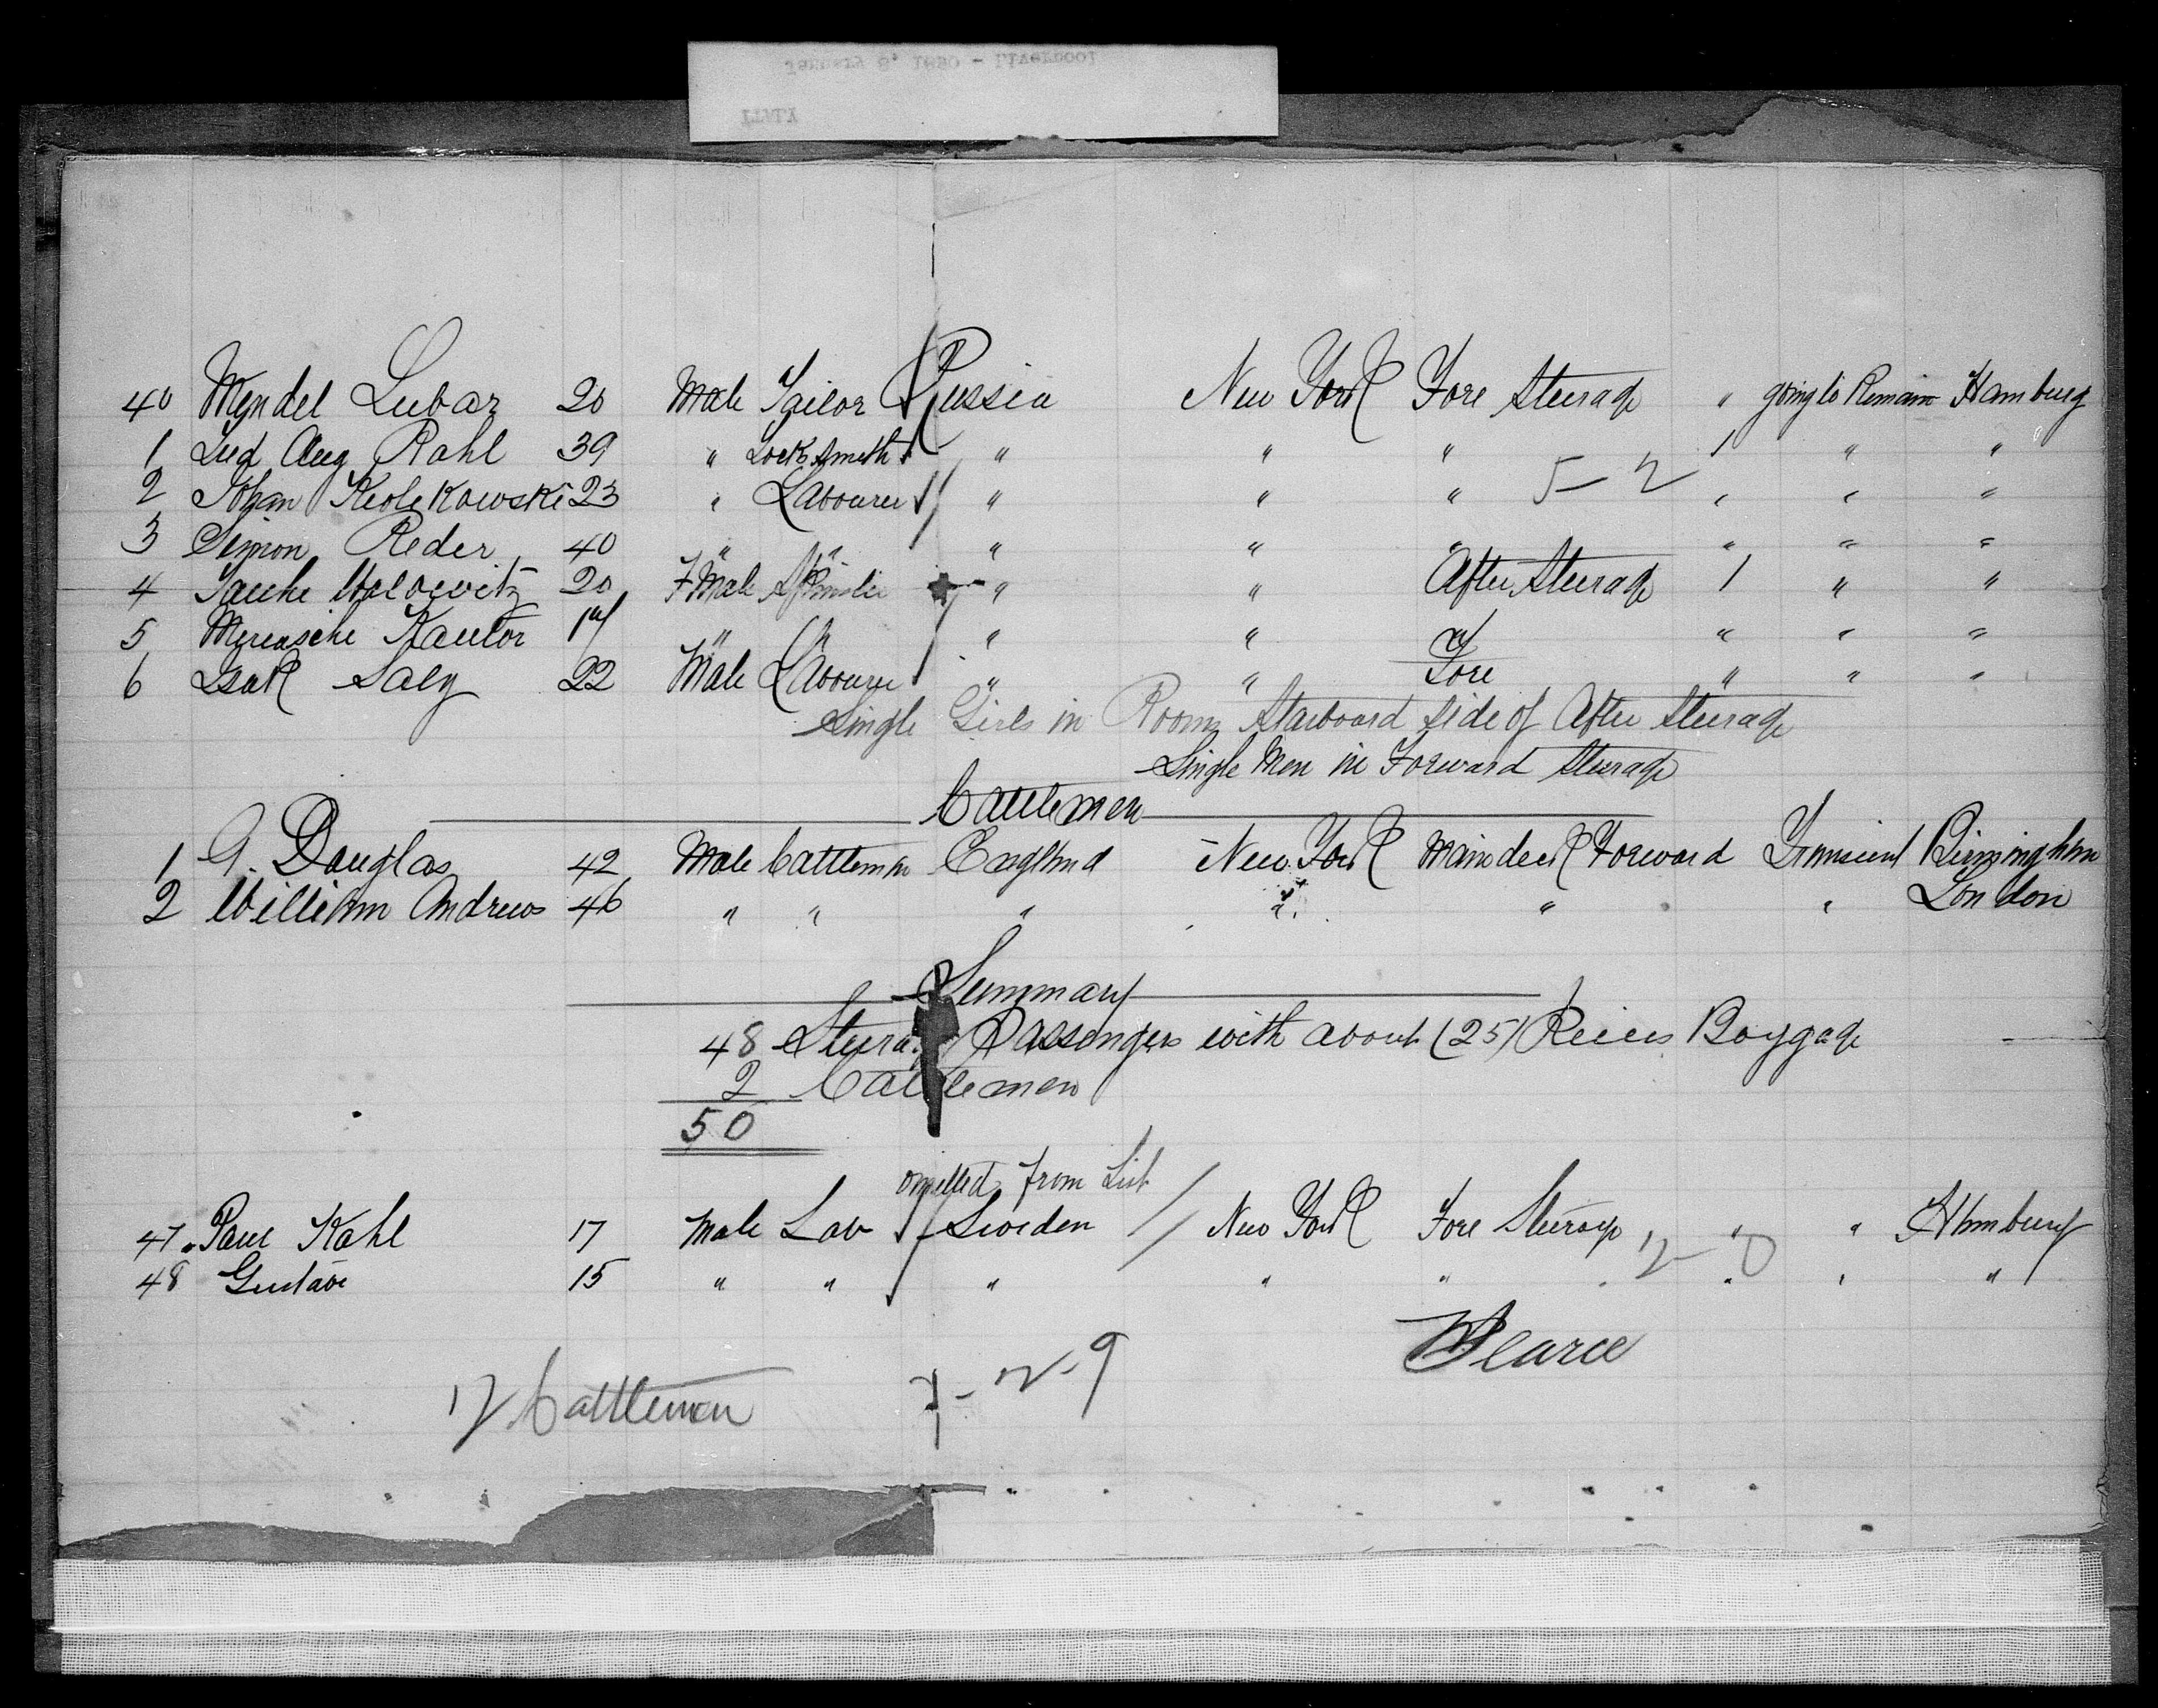 40 Mendel Lubar 20 Male Tailor Russia New York Fore Steerage " going to Remain Hamburg
1 Lud Aug Rahl 39 " Locksmith " " " 1 " "
2 Johan 23 " Labourer " " " " " "
5-2
3 Simon Reder 40 " " " " " " " "
4 20 FMale " " After Steerage 1 " "
5 Kantor 17 " " " " " " " "
6 Isak Saly 22 Male Labourer " " Fore " " "
Single Girls in Rooms Starboard side of After Steerage
Single Men in Forward Steerage
Cattlemen
1 A. Douglas 42 Male Cattleman England New York Main deck Forward Transient Birmingham
2 William Andrews 46 " " " " " " London
Summary
48 Steerage Passengers with about (25) Peices Baggage
2 Cattlemen
50
omitted from List
47. Paul Kahl 17 Male Lab Sweden New York Fore Steerage " " Hamburg
48 Gustave 15 " " " " " " " "
12-0
Pearce
12 Cattlemen 7-2-9